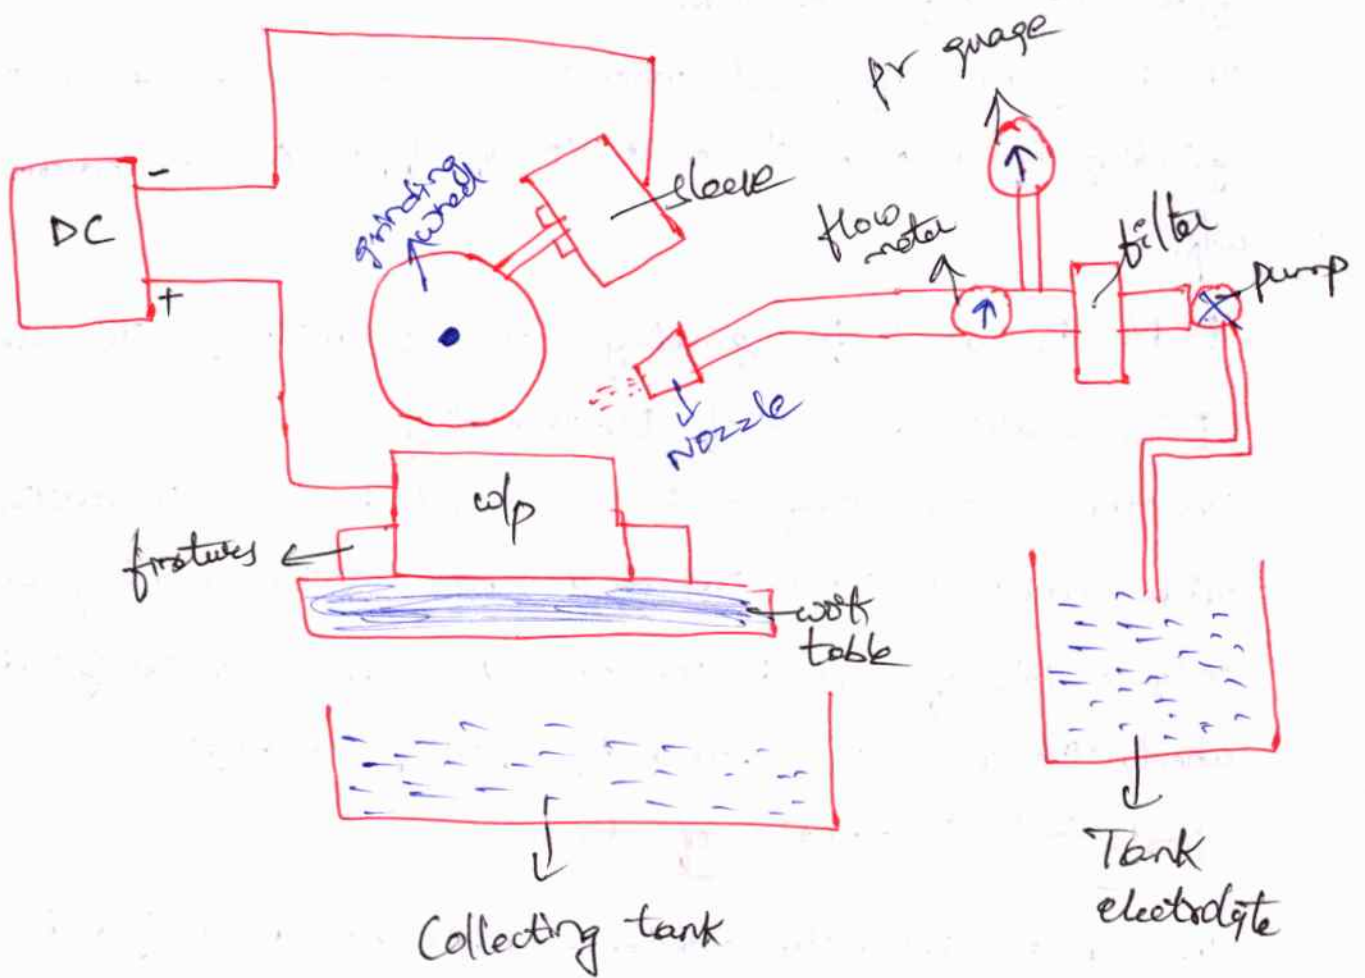 pr guage
-
DC
+
grinding
wheel
sleeve
flow
meter
filter
pump
Nozzle
w/p
fixtures
work
table
Collecting tank
Tank
electrolyte